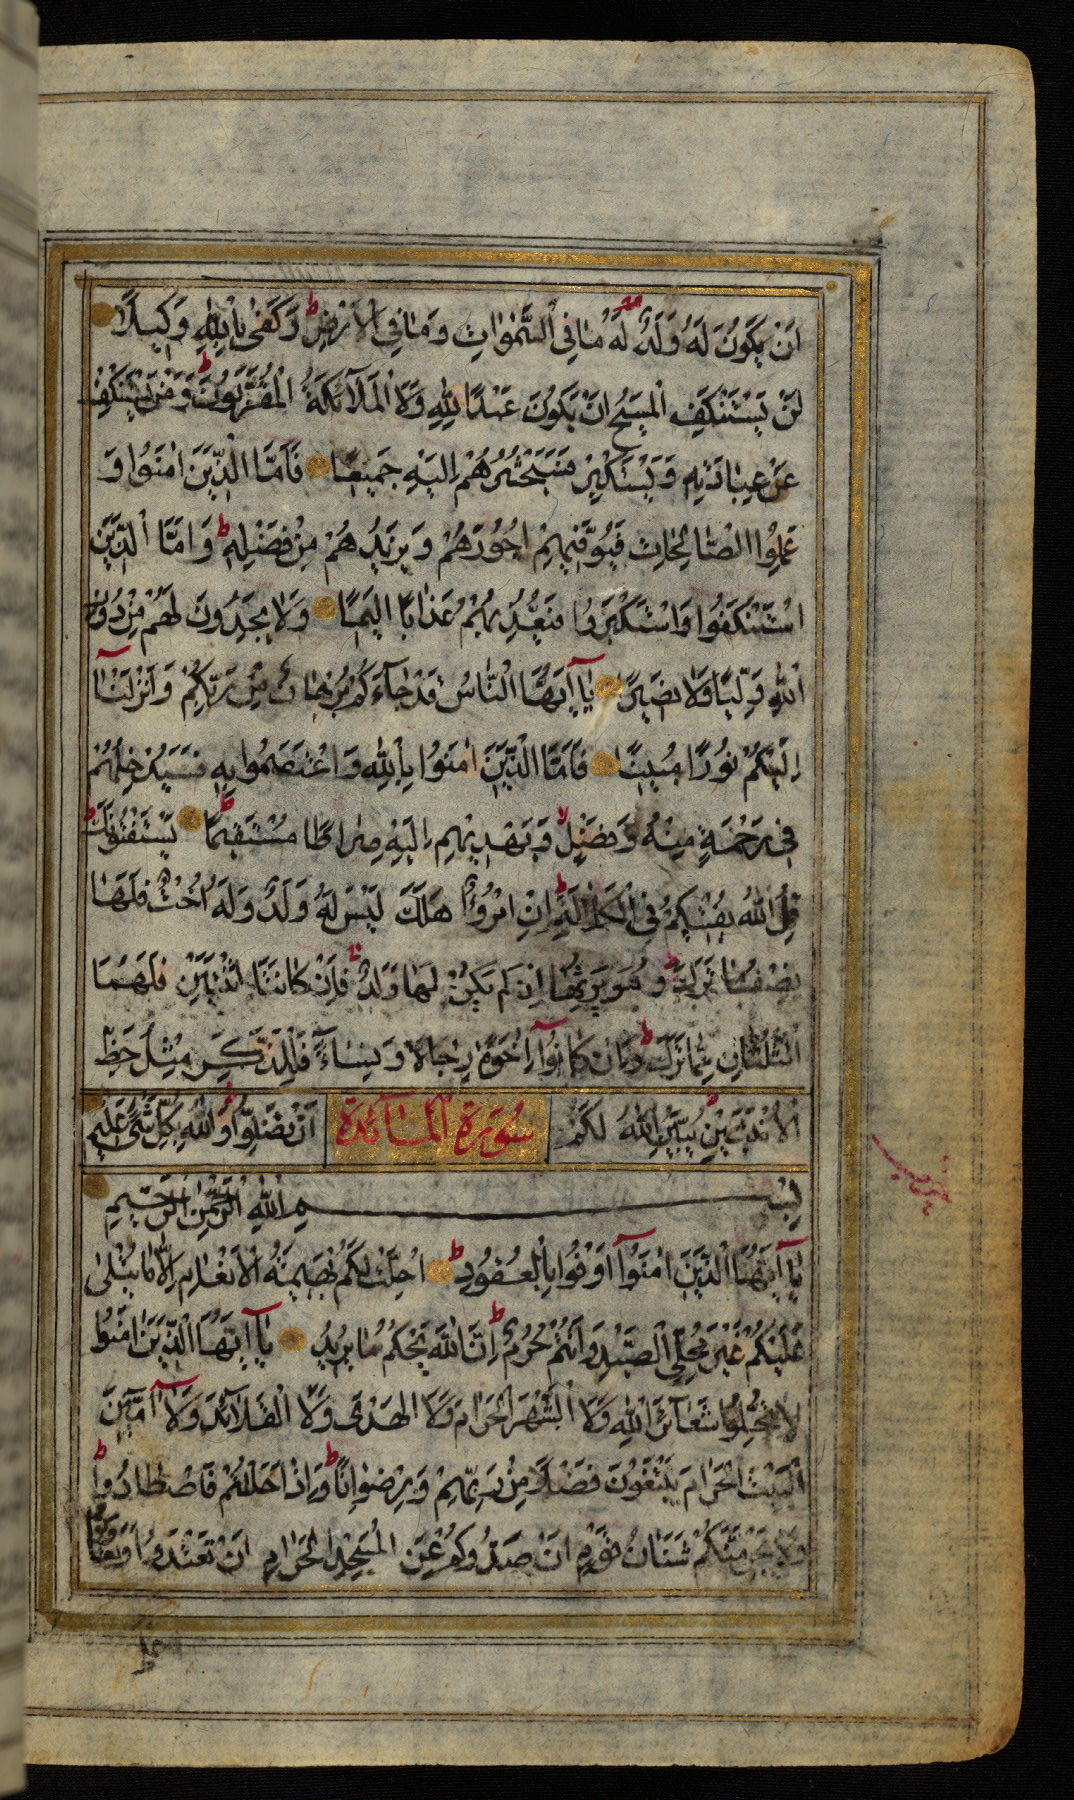 اَنْ يَكُونَ لَهُ وَلَدٌ لَهُ مَا فِي السَّمٰوَاتِ وَمَا فِي الْاَرْضِ وَكَفٰى بِاللّٰهِ وَكِيلًا
لَنْ يَسْتَنْكِفَ الْمَسِيحُ اَنْ يَكُونَ عَبْدًا لِلّٰهِ وَلَا الْمَلَآئِكَةُ الْمُقَرَّبُونَ وَمَنْ يَسْتَنْكِفْ
عَنْ عِبَادَتِهِ وَيَسْتَكْبِرْ فَسَيَحْشُرُهُمْ اِلَيْهِ جَمِيعًا فَاَمَّا الَّذِينَ اٰمَنُوا وَ
عَمِلُوا الصَّالِحَاتِ فَيُوَفِّيهِمْ اُجُورَهُمْ وَيَزِيدُهُمْ مِنْ فَضْلِهِ وَاَمَّا الَّذِينَ
اسْتَنْكَفُوا وَاسْتَكْبَرُوا فَيُعَذِّبُهُمْ عَذَابًا اَلِيمًا وَلَا يَجِدُونَ لَهُمْ مِنْ دُونِ
اللّٰهِ وَلِيًّا وَلَا نَصِيرًا يَآ اَيُّهَا النَّاسُ قَدْ جَآءَكُمْ بُرْهَانٌ مِنْ رَبِّكُمْ وَاَنْزَلْنَآ
اِلَيْكُمْ نُورًا مُبِينًا فَاَمَّا الَّذِينَ اٰمَنُوا بِاللّٰهِ وَاعْتَصَمُوا بِهِ فَسَيُدْخِلُهُمْ
فِي رَحْمَةٍ مِنْهُ وَفَضْلٍ وَيَهْدِيهِمْ اِلَيْهِ صِرَاطًا مُسْتَقِيمًا يَسْتَفْتُونَكَ
قُلِ اللّٰهُ يُفْتِيكُمْ فِي الْكَلَالَةِ اِنِ امْرُؤٌا هَلَكَ لَيْسَ لَهُ وَلَدٌ وَلَهُ اُخْتٌ فَلَهَا
نِصْفُ مَا تَرَكَ وَهُوَ يَرِثُهَا اِنْ لَمْ يَكُنْ لَهَا وَلَدٌ فَاِنْ كَانَتَا اثْنَتَيْنِ فَلَهُمَا
الثُّلُثَانِ مِمَّا تَرَكَ وَاِنْ كَانُوآ اِخْوَةً رِجَالًا وَنِسَآءً فَلِلذَّكَرِ مِثْلُ حَظِّ
الْاُنْثَيَيْنِ يُبَيِّنُ اللّٰهُ لَكُمْ سُورَةُ الْمَائِدَة اَنْ تَضِلُّوا وَاللّٰهُ بِكُلِّ شَيْءٍ عَلِيمٌ
بِسْمِ اللّٰهِ الرَّحْمٰنِ الرَّحِيمِ
يَآ اَيُّهَا الَّذِينَ اٰمَنُوآ اَوْفُوا بِالْعُقُودِ اُحِلَّتْ لَكُمْ بَهِيمَةُ الْاَنْعَامِ اِلَّا مَا يُتْلٰى
عَلَيْكُمْ غَيْرَ مُحِلِّي الصَّيْدِ وَاَنْتُمْ حُرُمٌ اِنَّ اللّٰهَ يَحْكُمُ مَا يُرِيدُ يَآ اَيُّهَا الَّذِينَ اٰمَنُوا
لَا تُحِلُّوا شَعَآئِرَ اللّٰهِ وَلَا الشَّهْرَ الْحَرَامَ وَلَا الْهَدْيَ وَلَا الْقَلَآئِدَ وَلَآ اٰمِّينَ
الْبَيْتَ الْحَرَامَ يَبْتَغُونَ فَضْلًا مِنْ رَبِّهِمْ وَرِضْوَانًا وَاِذَا حَلَلْتُمْ فَاصْطَادُوا
وَلَا يَجْرِمَنَّكُمْ شَنَاٰنُ قَوْمٍ اَنْ صَدُّوكُمْ عَنِ الْمَسْجِدِ الْحَرَامِ اَنْ تَعْتَدُوا وَتَعَاوَنُوا